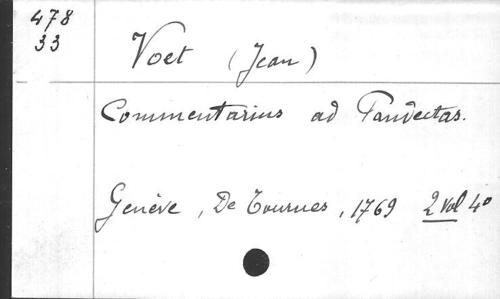 478
33
Voet (Jean)
Commentarius ad Pandectas.
Genève, De Tournes, 1769 2 Vol 4°